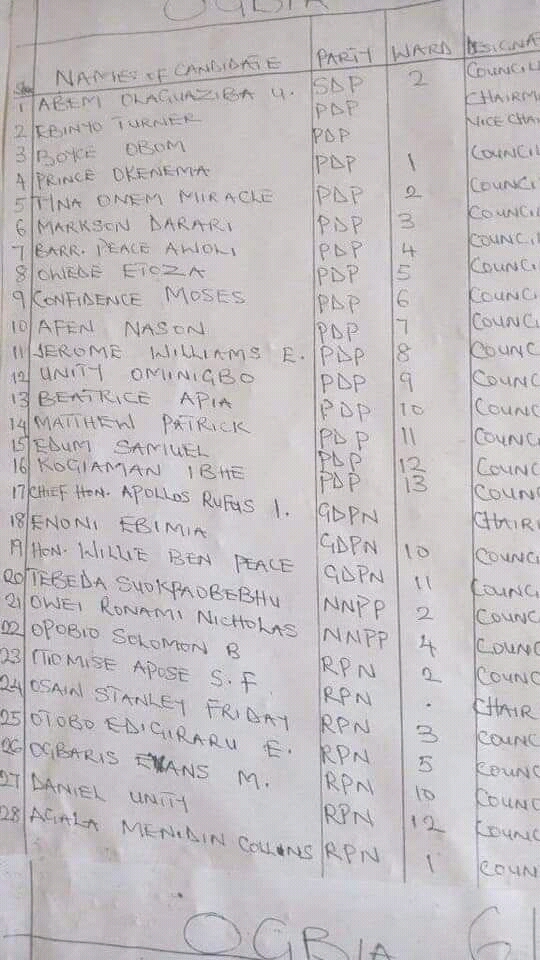 OGBIA
NAMES OF CANDIDATE PARTY WARD DESIGNA
1 ABEM OLAGUAZIBA U. SDP 2 COUNCIL
2 EBINYO TURNER PDP CHAIRM
3 BOYCE OBOM PDP VICE CHAI
4 PRINCE OKENEMA PDP 1 COUNCIL
5 TINA ONEM MIRACLE PDP 2 COUNCIL
6 MARKSON DARARI PDP 3 COUNCIL
7 BARR. PEACE AWOLI PDP 4 COUNCIL
8 OWEDE ETOZA PDP 5 COUNCI
9 CONFIDENCE MOSES PDP 6 COUNCI
10 AFEN NASON PDP 7 COUNCI
11 JEROME WILLIAMS E. PDP 8 COUNC
12 UNITY OMINIGBO PDP 9 COUNC
13 BEATRICE APIA PDP 10 COUNC
14 MATTHEW PATRICK PDP 11 COUNC
15 EDUM SAMUEL PDP 12 COUNC
16 KOGIAMAN IBHE PDP 13 COUNC
17 CHIEF HON. APOLLOS RUFUS I. GDPN CHAIR
18 ENONI EBIMIA GDPN 10 COUNC
19 HON. WILLIE BEN PEACE GDPN 11 COUNC
20 TEBEDA SUOKPAOBEBHU NNPP 2 COUNC
21 OWEI RONAMI NICHOLAS NNPP 4 COUNC
22 OPOBIO SOLOMON B RPN 2 COUNC
23 ITIOMISE APOSE S.F RPN . CHAIR
24 OSAIN STANLEY FRIDAY RPN 3 COUNC
25 OTOBO EDIGIRARU E. RPN 5 COUNC
26 OGBARIS EVANS M. RPN 10 COUNC
27 DANIEL UNITY RPN 12 COUNC
28 AGALA MENIDIN COLLINS RPN 1 COUN
OGBIA